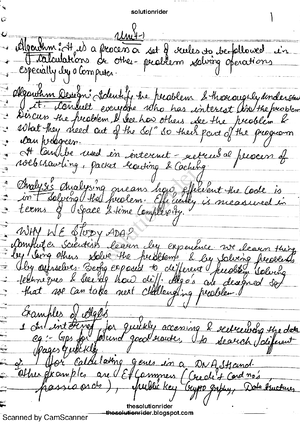 solutionrider
1
Unit-1
Algorithm:- It is a process or set of rules to be followed in
calculations or other problem solving operations
especially by a Computer.
Algorithm Design:- Identify the problem & thoroughly understand
it. Consult everyone who has interest in the problem
Discuss the problem & see how others see the problem &
what they need out of the Solⁿ so that part of the program
can progress.
It can be used in internet - retrieval process of
web browsing, packet routing & Caching
Analysis Analysing means how efficient the Code is
in solving the problem. Efficiency is measured in
terms of Space & time Complexity.
WHY WE STUDY ADA?
Computer Scientist learn by experience. We learn things
by seeing others solve the problems & by solving problems
by ourselves. Being exposed to different problem solving
techniques & seeing how diff algo's are designed so
that we can take next challenging problem.
Examples of Algos
1 On internet for quickly accessing & retrieving the data
eg:- for found good routes, to search different
pages quickly
2 For Calculating genes in a DNA Strand
other examples are E-Commerce (Credit & Card no's
passwords), public key Cryptography, Data Structures
thesolutionrider
Scanned by CamScanner
thesolutionrider.blogspot.com